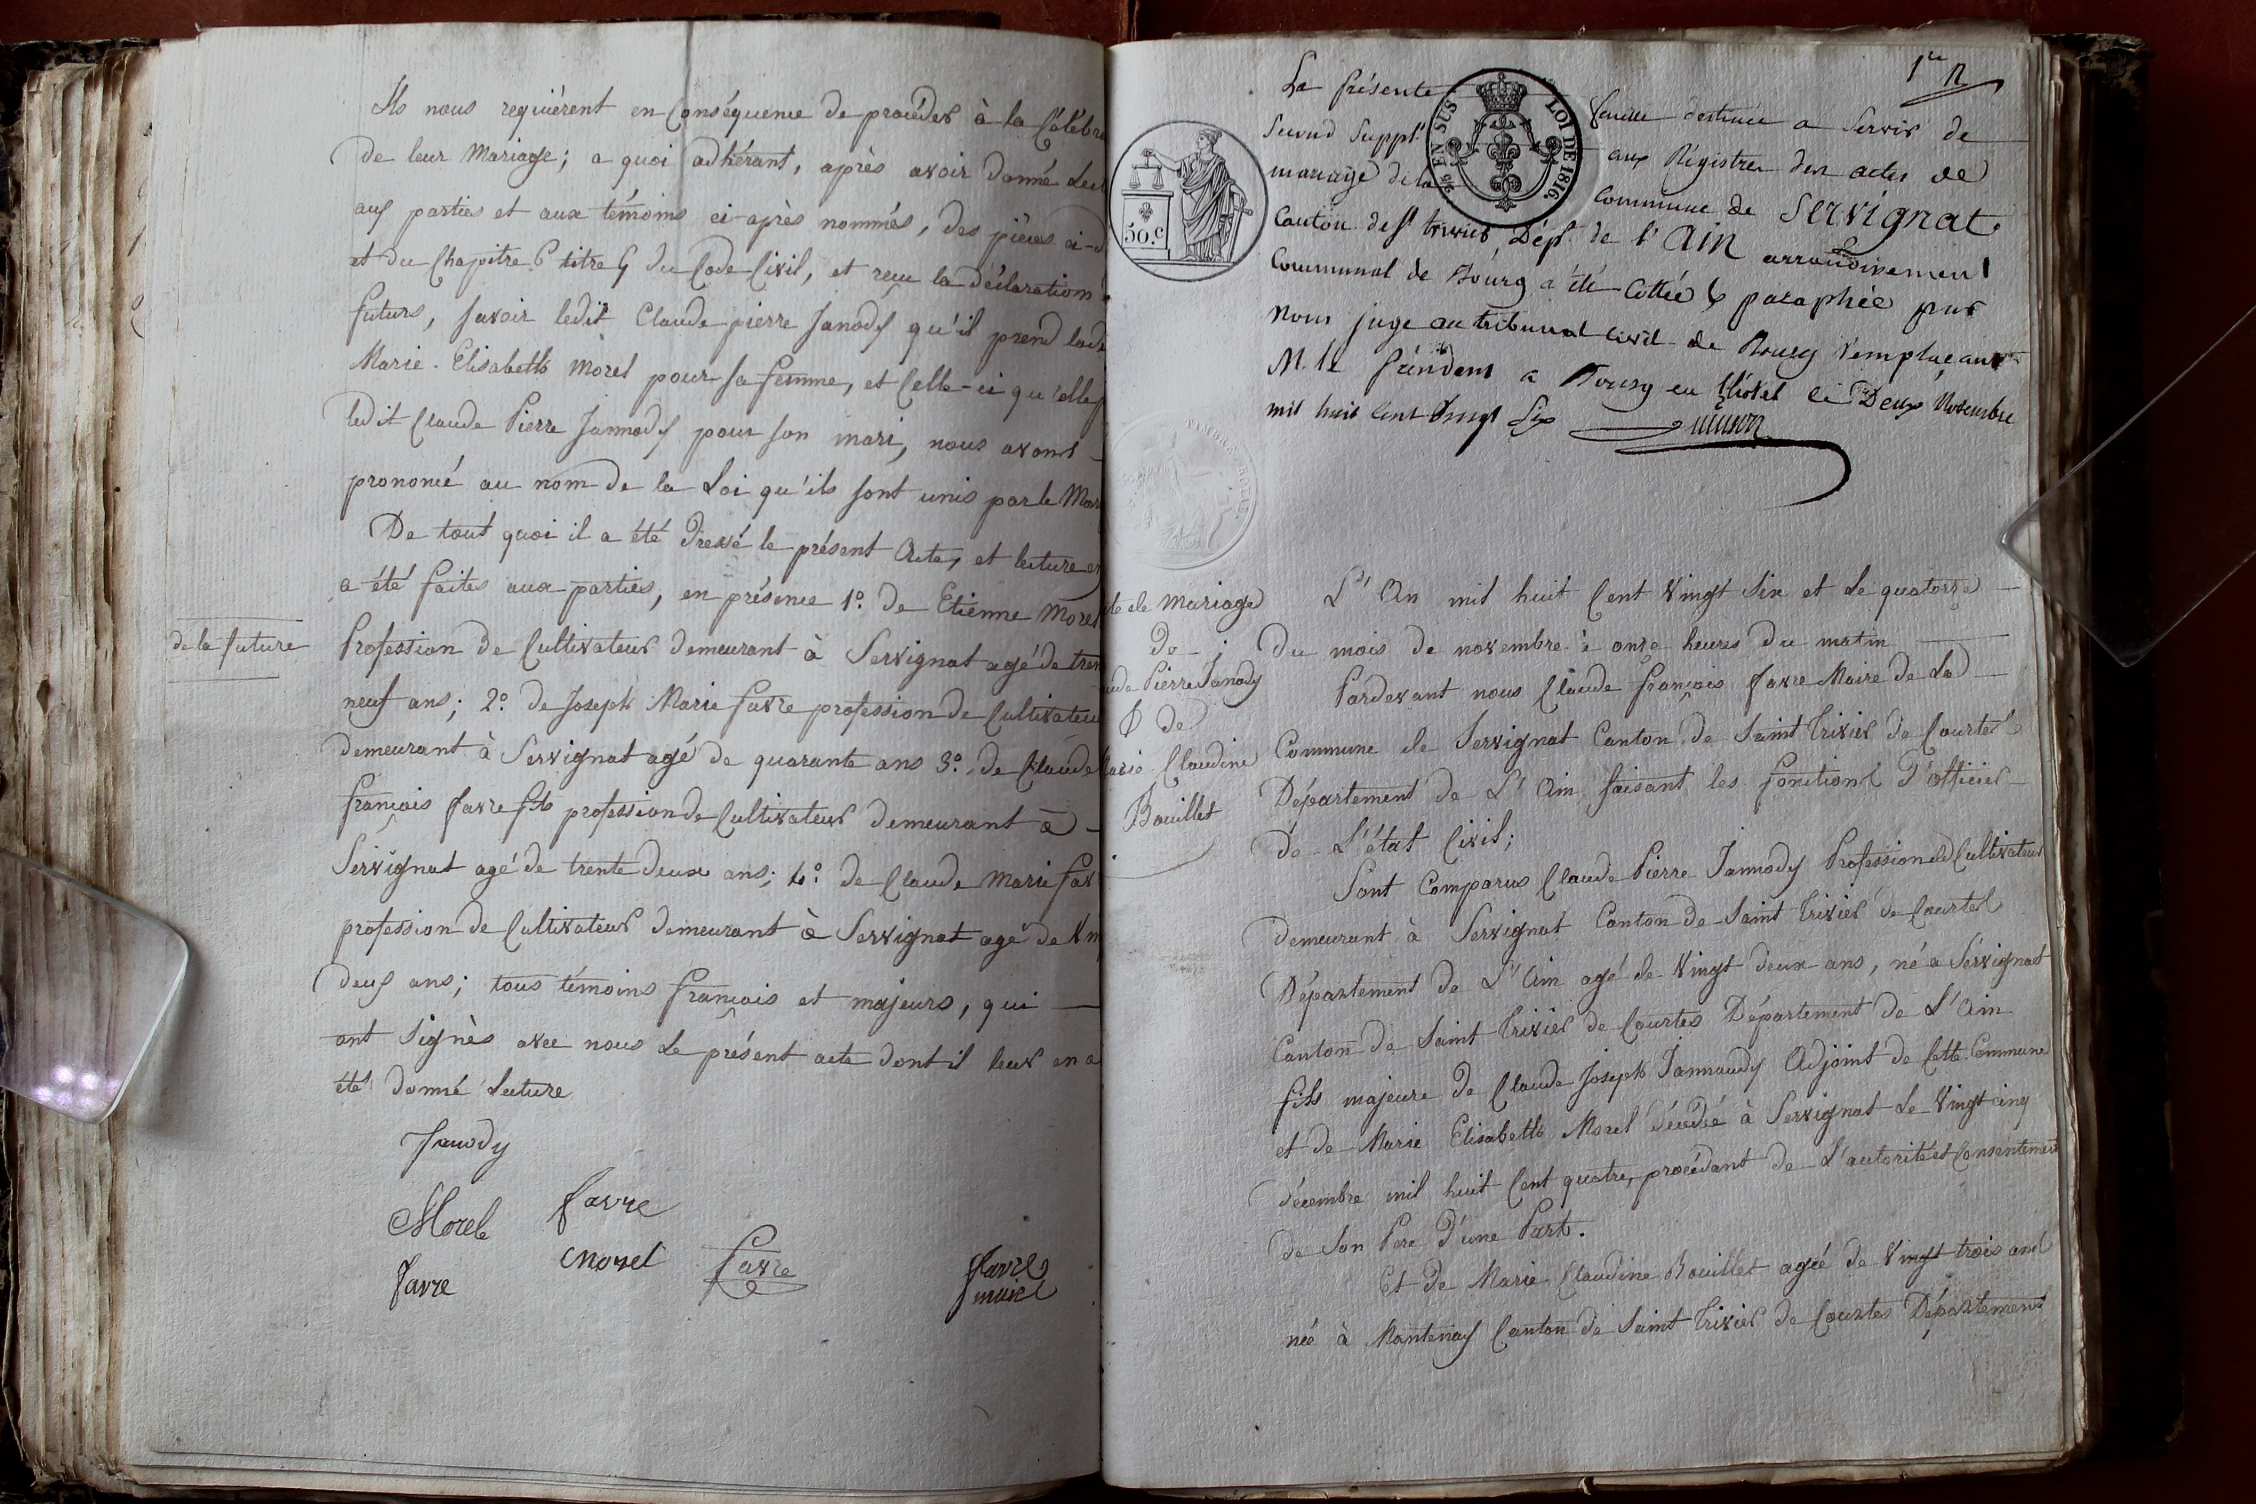 Ils nous requièrent en Conséquence de procéder à la Célébra
de leur Mariage; a quoi adhérant, après avoir donné Lect
aux parties et aux témoins ci-après nommés, des pièces ci-d
et du Chapitre 6 titre 5 du Code Civil, et reçu la déclaration
futurs, savoir ledit Claude pierre Janody qu'il prend ladi
Marie-Elisabeth Morel pour sa femme, et Celle-ci qu'elle p
ledit Claude Pierre Jannody pour son mari, nous avons
prononcé au nom de la Loi qu'ils sont unis par le Mar
De tout quoi il a été dressé le présent Acte, et lecture en
a été faites aux parties, en présence 1º. de Etienne Morel
de la future
Profession de Cultivateur demeurant à Servignat agé de tren
neuf ans; 2º. de Joseph Marie favre profession de Cultivateu
demeurant à Servignat agé de quarante ans 3º. de Claude
françois favre fils profession de Cultivateur demeurant à
Servignat agé de trente deux ans; 4º. de Claude Marie fav
profession de Cultivateur demeurant à Servignat agé de Vin
deux ans; tous témoins français et majeurs, qui
ont signès avec nous Le présent acte dont il leur en a
été donné Lecture
Janody
Morel favre
favre Morel favre favre
maire
1er
La présente feuille destinée a Servir de
Second Supplt aux Régistres des actes de
mariage de la Commune de Servignat
Canton de St trivier Dépt. de l'Ain arrondissement
Communal de Bourg a été Cottée & paraphée par
Nous juge au tribunal civil de Bourg remplaçant
M. le Président a Bourg en l'hôtel ce Deux Novembre
mil huit Cent Vingt Six
EN SUS LOI DE 1816.
50.c
TIMBRE ROYAL
te de Mariage
De
ude Pierre Janody
& de
arie Claudine
Bouillet
L'An mil huit Cent Vingt Six et Le quatorze
du mois de novembre à onze heures du matin
Pardevant nous Claude françois favre Maire de La
Commune de Servignat Canton de Saint Trivier de Courtes
Département de L'Ain faisant les fonctions d'officier
de L'état Civil;
Sont Comparus Claude Pierre Jannody Profession de Cultivateur
demeurant à Servignat Canton de Saint Trivier de Courtes
Département de L'Ain agé de Vingt deux ans, né à Servignat
Canton de Saint Trivier de Courtes Département de L'Ain
fils majeure de Claude Joseph Jannaudy Adjoint de Cette Commune
et de Marie Elisabeth Morel décédée à Servignat Le Vingt cinq
décembre mil huit Cent quatre, procédant de L'autorité et Consentement
de Son Pere d'une Part.
Et de Marie Claudine Bouillet agée de Vingt trois ans
née à Mantenay Canton de Saint Trivier de Courtes Département